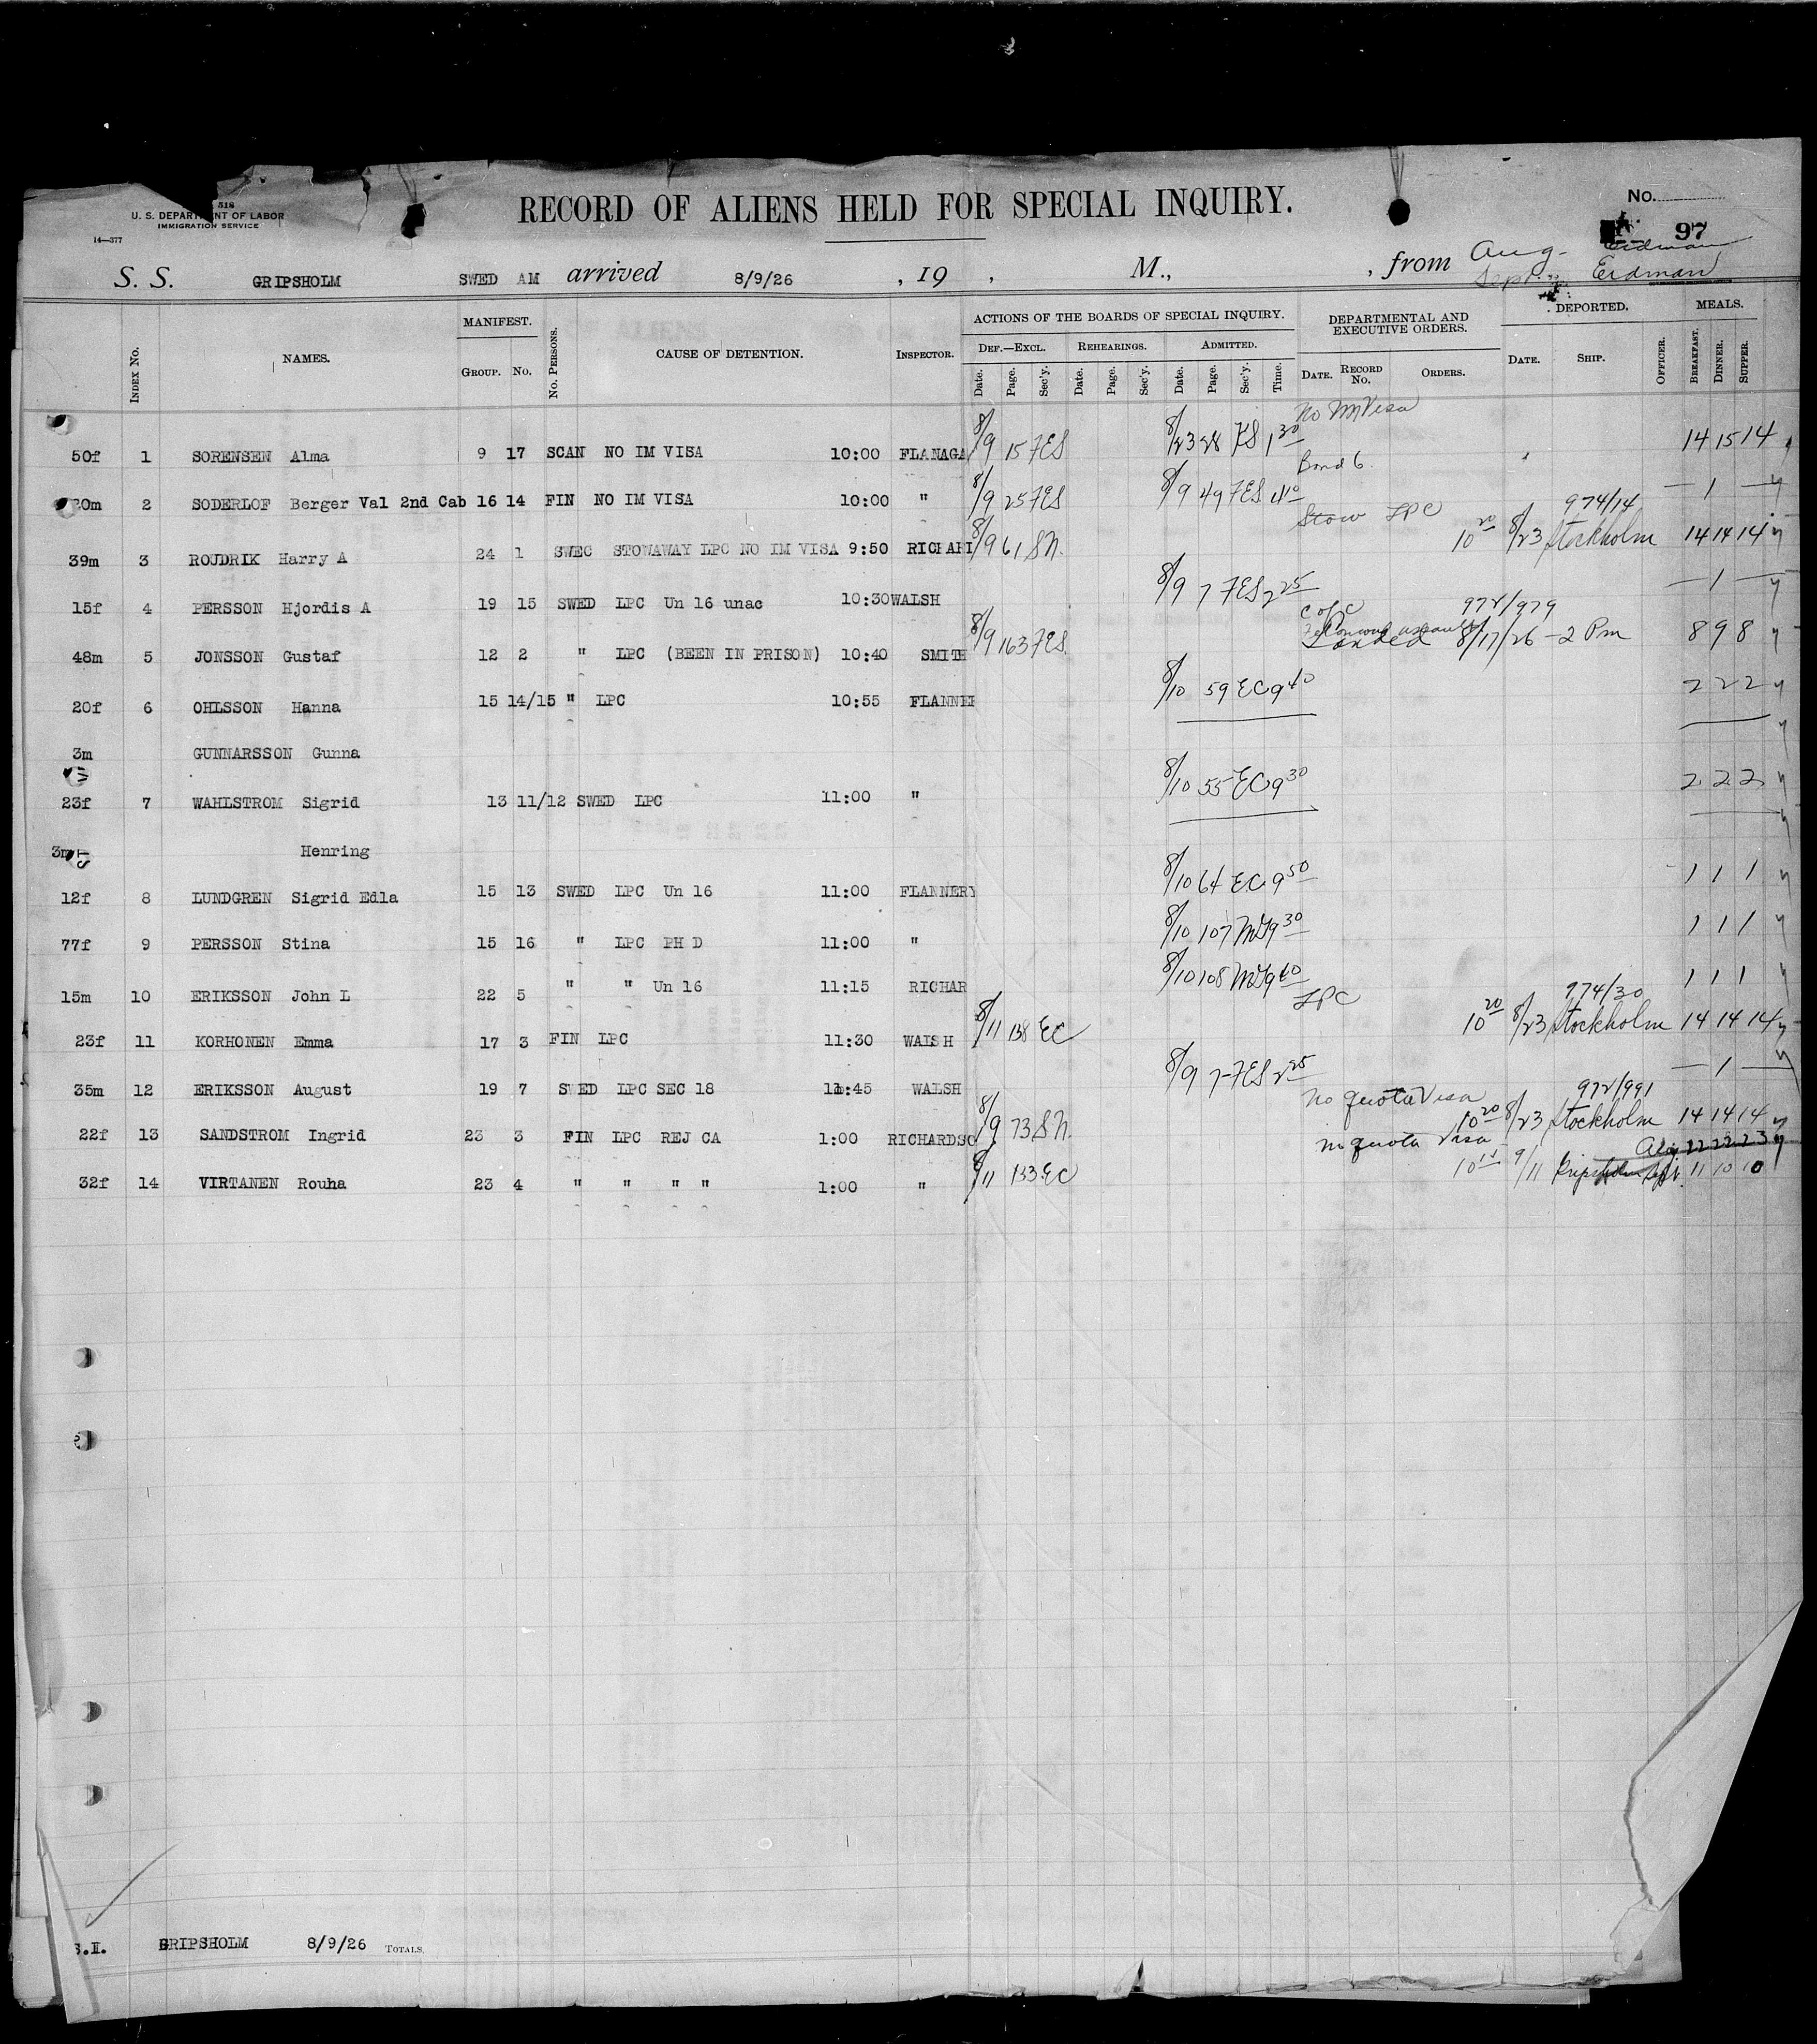 518
U. S. DEPARTMENT OF LABOR
IMMIGRATION SERVICE
14—377
RECORD OF ALIENS HELD FOR SPECIAL INQUIRY.
No.
97
S. S. GRIPSHOLM SWED AM arrived 8/9/26 , 19 , M., , from Aug. Erdman
Sept. Erdman
INDEX No. NAMES. MANIFEST. GROUP. No. No. PERSONS. CAUSE OF DETENTION. INSPECTOR. ACTIONS OF THE BOARDS OF SPECIAL INQUIRY. DEPARTMENTAL AND EXECUTIVE ORDERS. DEPORTED. MEALS.
DEF.—EXCL. REHEARINGS. ADMITTED.
Date. Page. Sec'y. Date. Page. Sec'y. Date. Page. Sec'y. Time. DATE. RECORD No. ORDERS. DATE. SHIP. OFFICER. BREAKFAST. DINNER. SUPPER.
No IM Visa
50f 1 SORENSEN Alma 9 17 SCAN NO IM VISA 10:00 FLANAGA 8/9 15 FES 8/23 28 1 30 14 15 14
Bond 6.
20m 2 SODERLOF Berger Val 2nd Cab 16 14 FIN NO IM VISA 10:00 " 8/9 25 FES 8/9 49 FES 4 10 — 1 —
Stow LPC 974/14
39m 3 ROUDRIK Harry A 24 1 SWEC STOWAWAY LPC NO IM VISA 9:50 RICHARI 8/9 61 SN. 10 20 8/23 Stockholm 14 14 14
15f 4 PERSSON Hjordis A 19 15 SWED LPC Un 16 unac 10:30 WALSH 8/9 7 FES 2 25 — 1 —
972/979
48m 5 JONSSON Gustaf 12 2 " LPC (BEEN IN PRISON) 10:40 SMITH 8/9 163 FES. Landed 8/17/26 - 2 Pm 8 9 8
20f 6 OHLSSON Hanna 15 14/15 " LPC 10:55 FLANNER 8/10 59 EC 9 40 2 2 2
3m GUNNARSSON Gunna
23f 7 WAHLSTROM Sigrid 13 11/12 SWED LPC 11:00 " 8/10 55 EC 9 30 2 2 2
3m Henring
12f 8 LUNDGREN Sigrid Edla 15 13 SWED LPC Un 16 11:00 FLANNERY 8/10 64 EC 9 50 1 1 1
77f 9 PERSSON Stina 15 16 " LPC PH D 11:00 " 8/10 107 9 30 1 1 1
15m 10 ERIKSSON John L 22 5 " " Un 16 11:15 RICHAR 8/10 108 9 40 1 1 1
LPC 974/30
23f 11 KORHONEN Emma 17 3 FIN LPC 11:30 WALSH 8/11 138 EC 10 20 8/23 Stockholm 14 14 14
35m 12 ERIKSSON August 19 7 SWED LPC SEC 18 11:45 WALSH 8/9 7 FES 2 25 — 1 —
No quota Visa 972/991
22f 13 SANDSTROM Ingrid 23 3 FIN LPC REJ CA 1:00 RICHARDSO 8/9 73 SN. 10 20 8/23 Stockholm 14 14 14
no quota visa Aug 22 22 23
32f 14 VIRTANEN Rouha 23 4 " " " " 1:00 " 8/11 133 EC 9/11 Gripsholm Sept. 11 10 10
S.I. GRIPSHOLM 8/9/26 TOTALS.